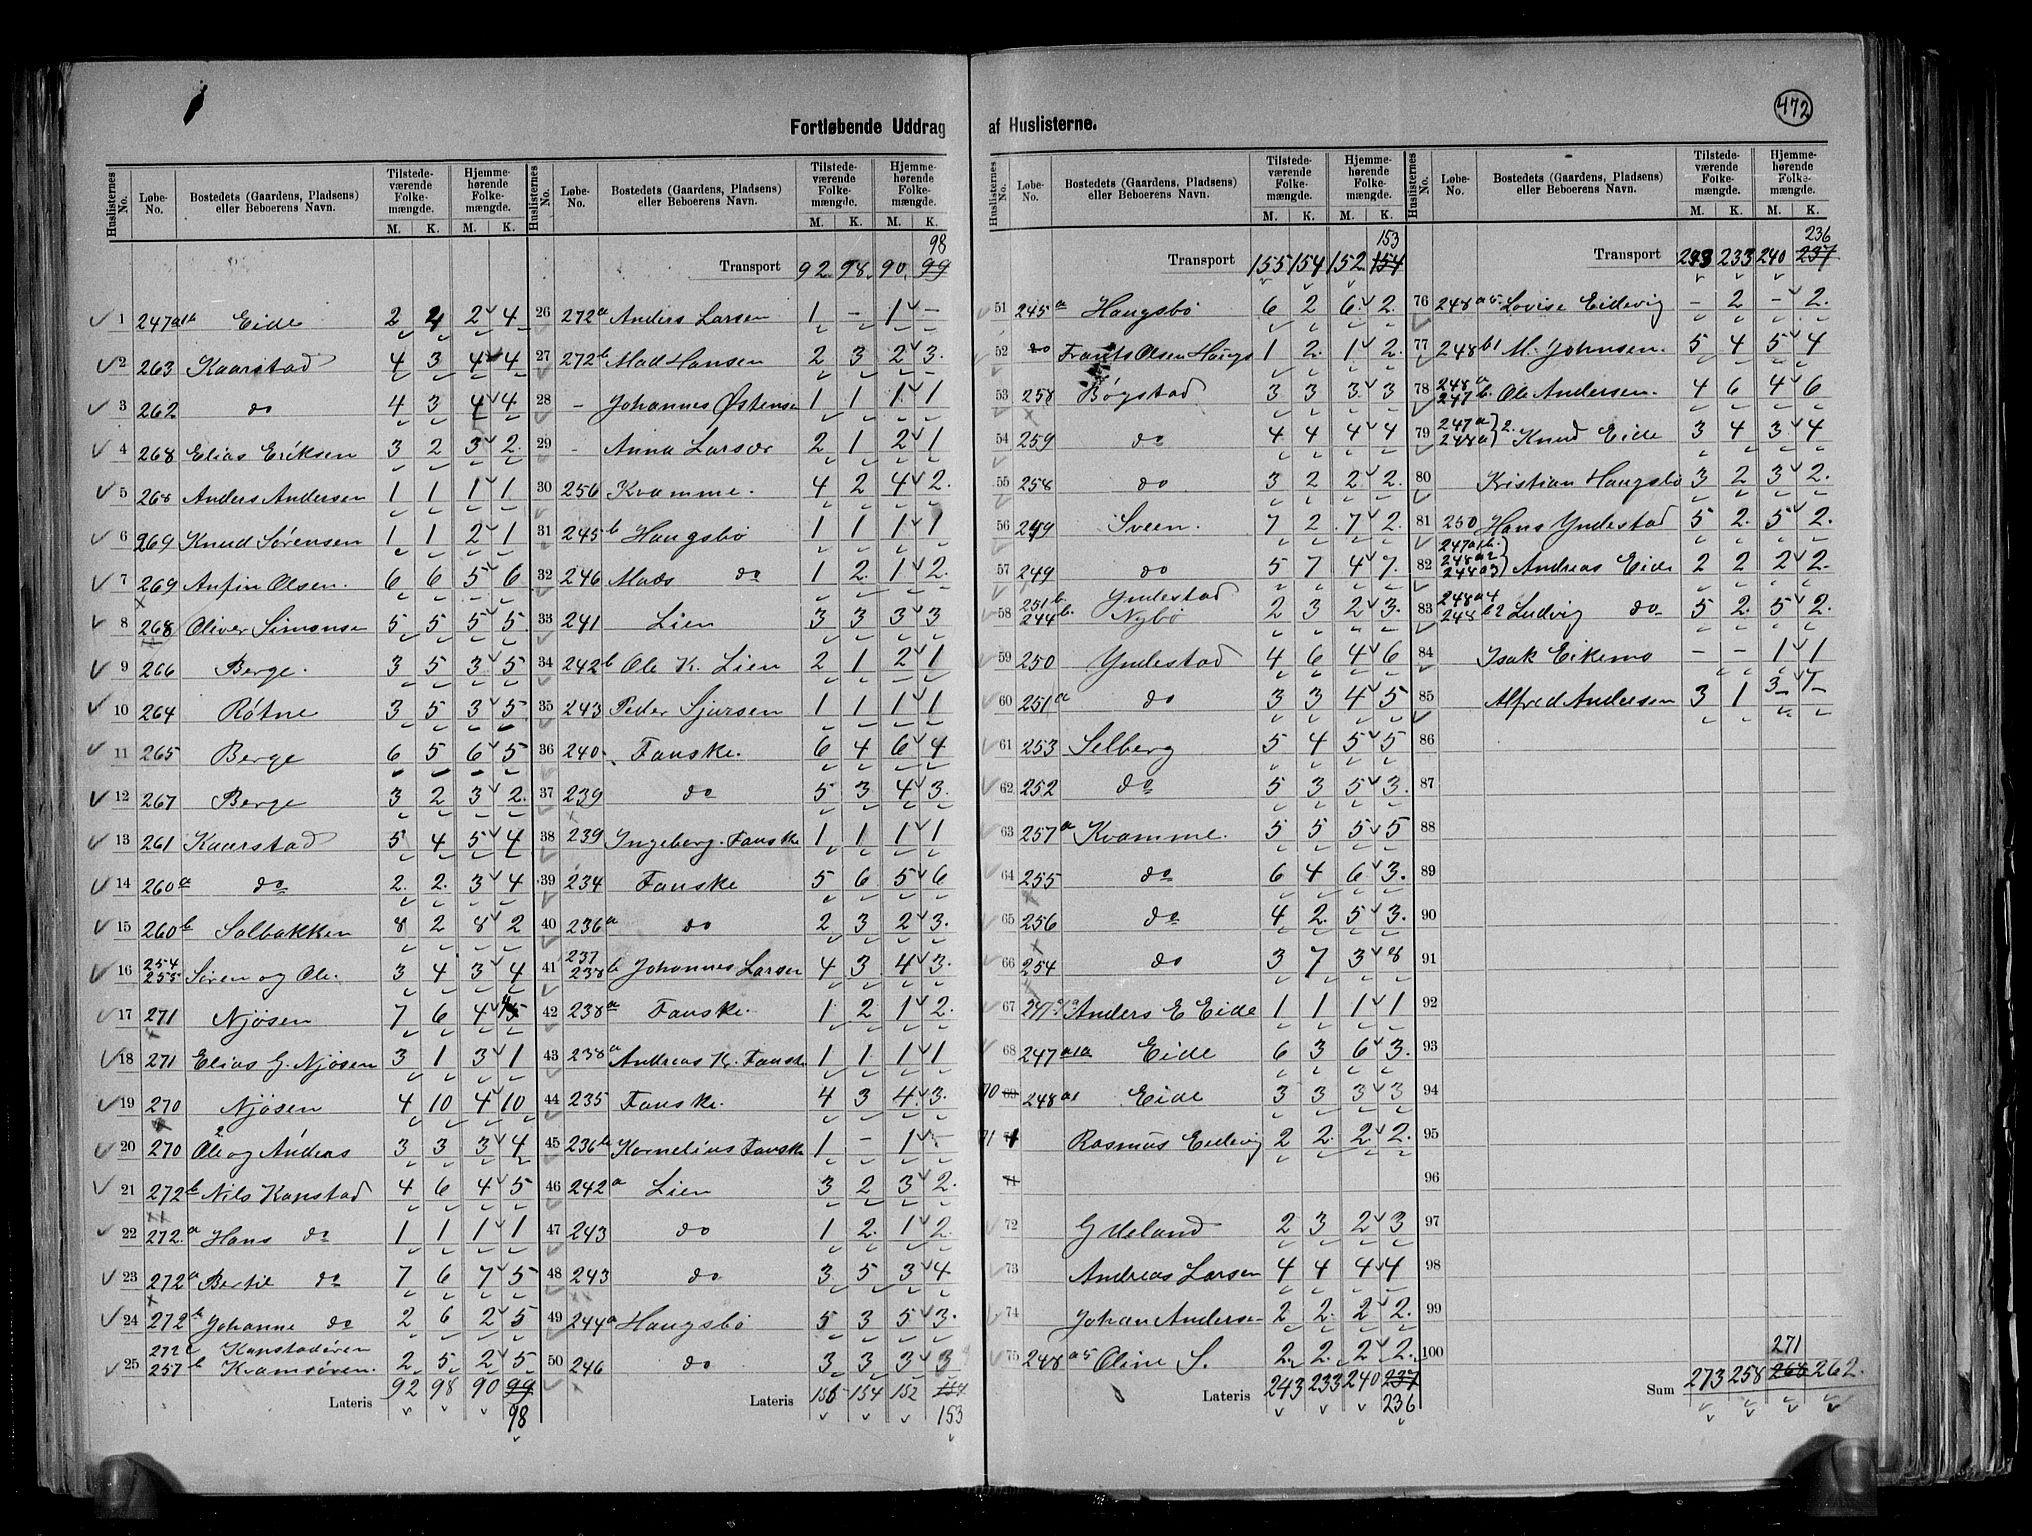 472
Fortløbende Uddrag af Huslisterne.
Huslisternes No. Løbe-No. Bostedets (Gaardens, Pladsens) eller Beboerens Navn. Tilstedeværende Folkemængde. M. K. Hjemmehørende Folkemængde. M. K.
98
Transport 92 98 90 99
1 247a1b Eide 2 4 2 4
2 263 Kaarstad 4 3 4 4
3 262 do 4 3 4 4
4 268 Elias Eriksen 3 2 3 2
5 268 Anders Andersen 1 1 1 1
6 269 Knud Sørensen 1 1 2 1
7 269 Anfin Olsen. 6 6 5 6
8 268 Oliver Simonse 5 5 5 5
9 266 Berge. 3 5 3 5
10 264 Røtne 3 5 3 5
11 265 Berge 6 5 6 5
12 267 Berge 3 2 3 2
13 261 Kaarstad 5 4 5 4
14 260a do 2 2 3 4
15 260b Solbakken 8 2 8 2
16 254 255 Sören og Ole. 3 4 3 4
17 271 Njøsen 7 6 4 5
18 271 Elias G. Njøsen 3 1 3 1
19 270 Njøsen 4 10 4 10
20 270 Ole og Anders 3 3 3 4
21 272b Nils Kanstad 4 6 4 5
22 272a Hans do 1 1 1 1
23 272a Bertil do 7 6 7 5
24 272b Johanne do 2 6 2 5
25 272c Kanstadören 257b Kvamsören. 2 5 2 5
Lateris 92 98 90 99
98
26 272a Anders Larsen 1 – 1 –
27 272b Mad Hansen 2 3 2 3
28 – Johannes Østense 1 1 1 1
29 – Anna Larsdr 2 1 2 1
30 256 Kvamme. 4 2 4 2
31 245b Haugsbø 1 1 1 1
32 246 Mads do 1 2 1 2
33 241 Lien 3 3 3 3
34 242b Ole K. Lien 2 1 2 1
35 243 Peder Sjursen 1 1 1 1
36 240 Fanske. 6 4 6 4
37 239 do 5 3 4 3
38 239 Ingeberg. Fanske 1 1 1 1
39 234 Fanske 5 6 5 6
40 236a do 2 3 2 3
41 237 238b Johannes Larsen 4 3 4 3
42 238a Fanske. 1 2 1 2
43 238a Andreas K. Fansk 1 1 1 1
44 235 Fanske. 4 3 4 3
45 236b Kornelius Fanske 1 – 1 –
46 242a Lien 3 2 3 2
47 243 do 1 2 1 2
48 243 do 3 5 3 4
49 244a Haugsbø 5 3 5 3
50 246 do 3 3 3 3
Lateris 155 154 152 154
153
153
Transport 155 154 152 154
51 245a Haugsbø 6 2 6 2
52 do Frants Olsen Haugs 1 2 1 2
53 258 Bøgstad 3 3 3 3
54 259 do 4 4 4 4
55 258 do 3 2 2 2
56 249 Sveen. 7 2 7 2
57 249 do 5 7 4 7
58 251b. 244b. Yndestad Nybø 2 3 2 3
59 250 Yndestad 4 6 4 6
60 251a do 3 3 4 5
61 253 Selberg 5 4 5 5
62 252 do 5 3 5 3
63 257a Kvamme. 5 5 5 5
64 255 do 6 4 6 3
65 256 do 4 2 5 3
66 254 do 3 7 3 8
67 247 Anders E Eide 1 1 1 1
68 247a1a Eide 6 3 6 3
70 69 248a1 Eide 3 3 3 3
71 Rasmus Eidevig 2 2 2 2
71
72 G Uteland 2 3 2 3
73 Andreas Larsen 4 4 4 4
74 Johan Anderse 2 2 2 2
75 248a5 Oline S. 2 2 2 2
Lateris 243 233 240 237
236
236
Transport 243 233 240 237
76 248a5 Lovise Eidevig – 2 – 2
77 248b1 M. Johnsen. 5 4 5 4
78 248a 247b. Ole Andersen. 4 6 4 6
79 247a 248a 2. Knud Eide 3 4 3 4
80 Kristian Haugsbø 3 2 3 2
81 250 Hans Yndestad 5 2 5 2
82 247a1b. 248a2 248a3 Andreas Eide 2 2 2 2
83 248a4 248b2 Ludvig do 5 2 5 2
84 Isak Eikemo – – 1 1
85 Alfred Andersen 3 1 3 1
86
87
88
89
90
91
92
93
94
95
96
97
98
99
100
271
Sum 273 258 268 262